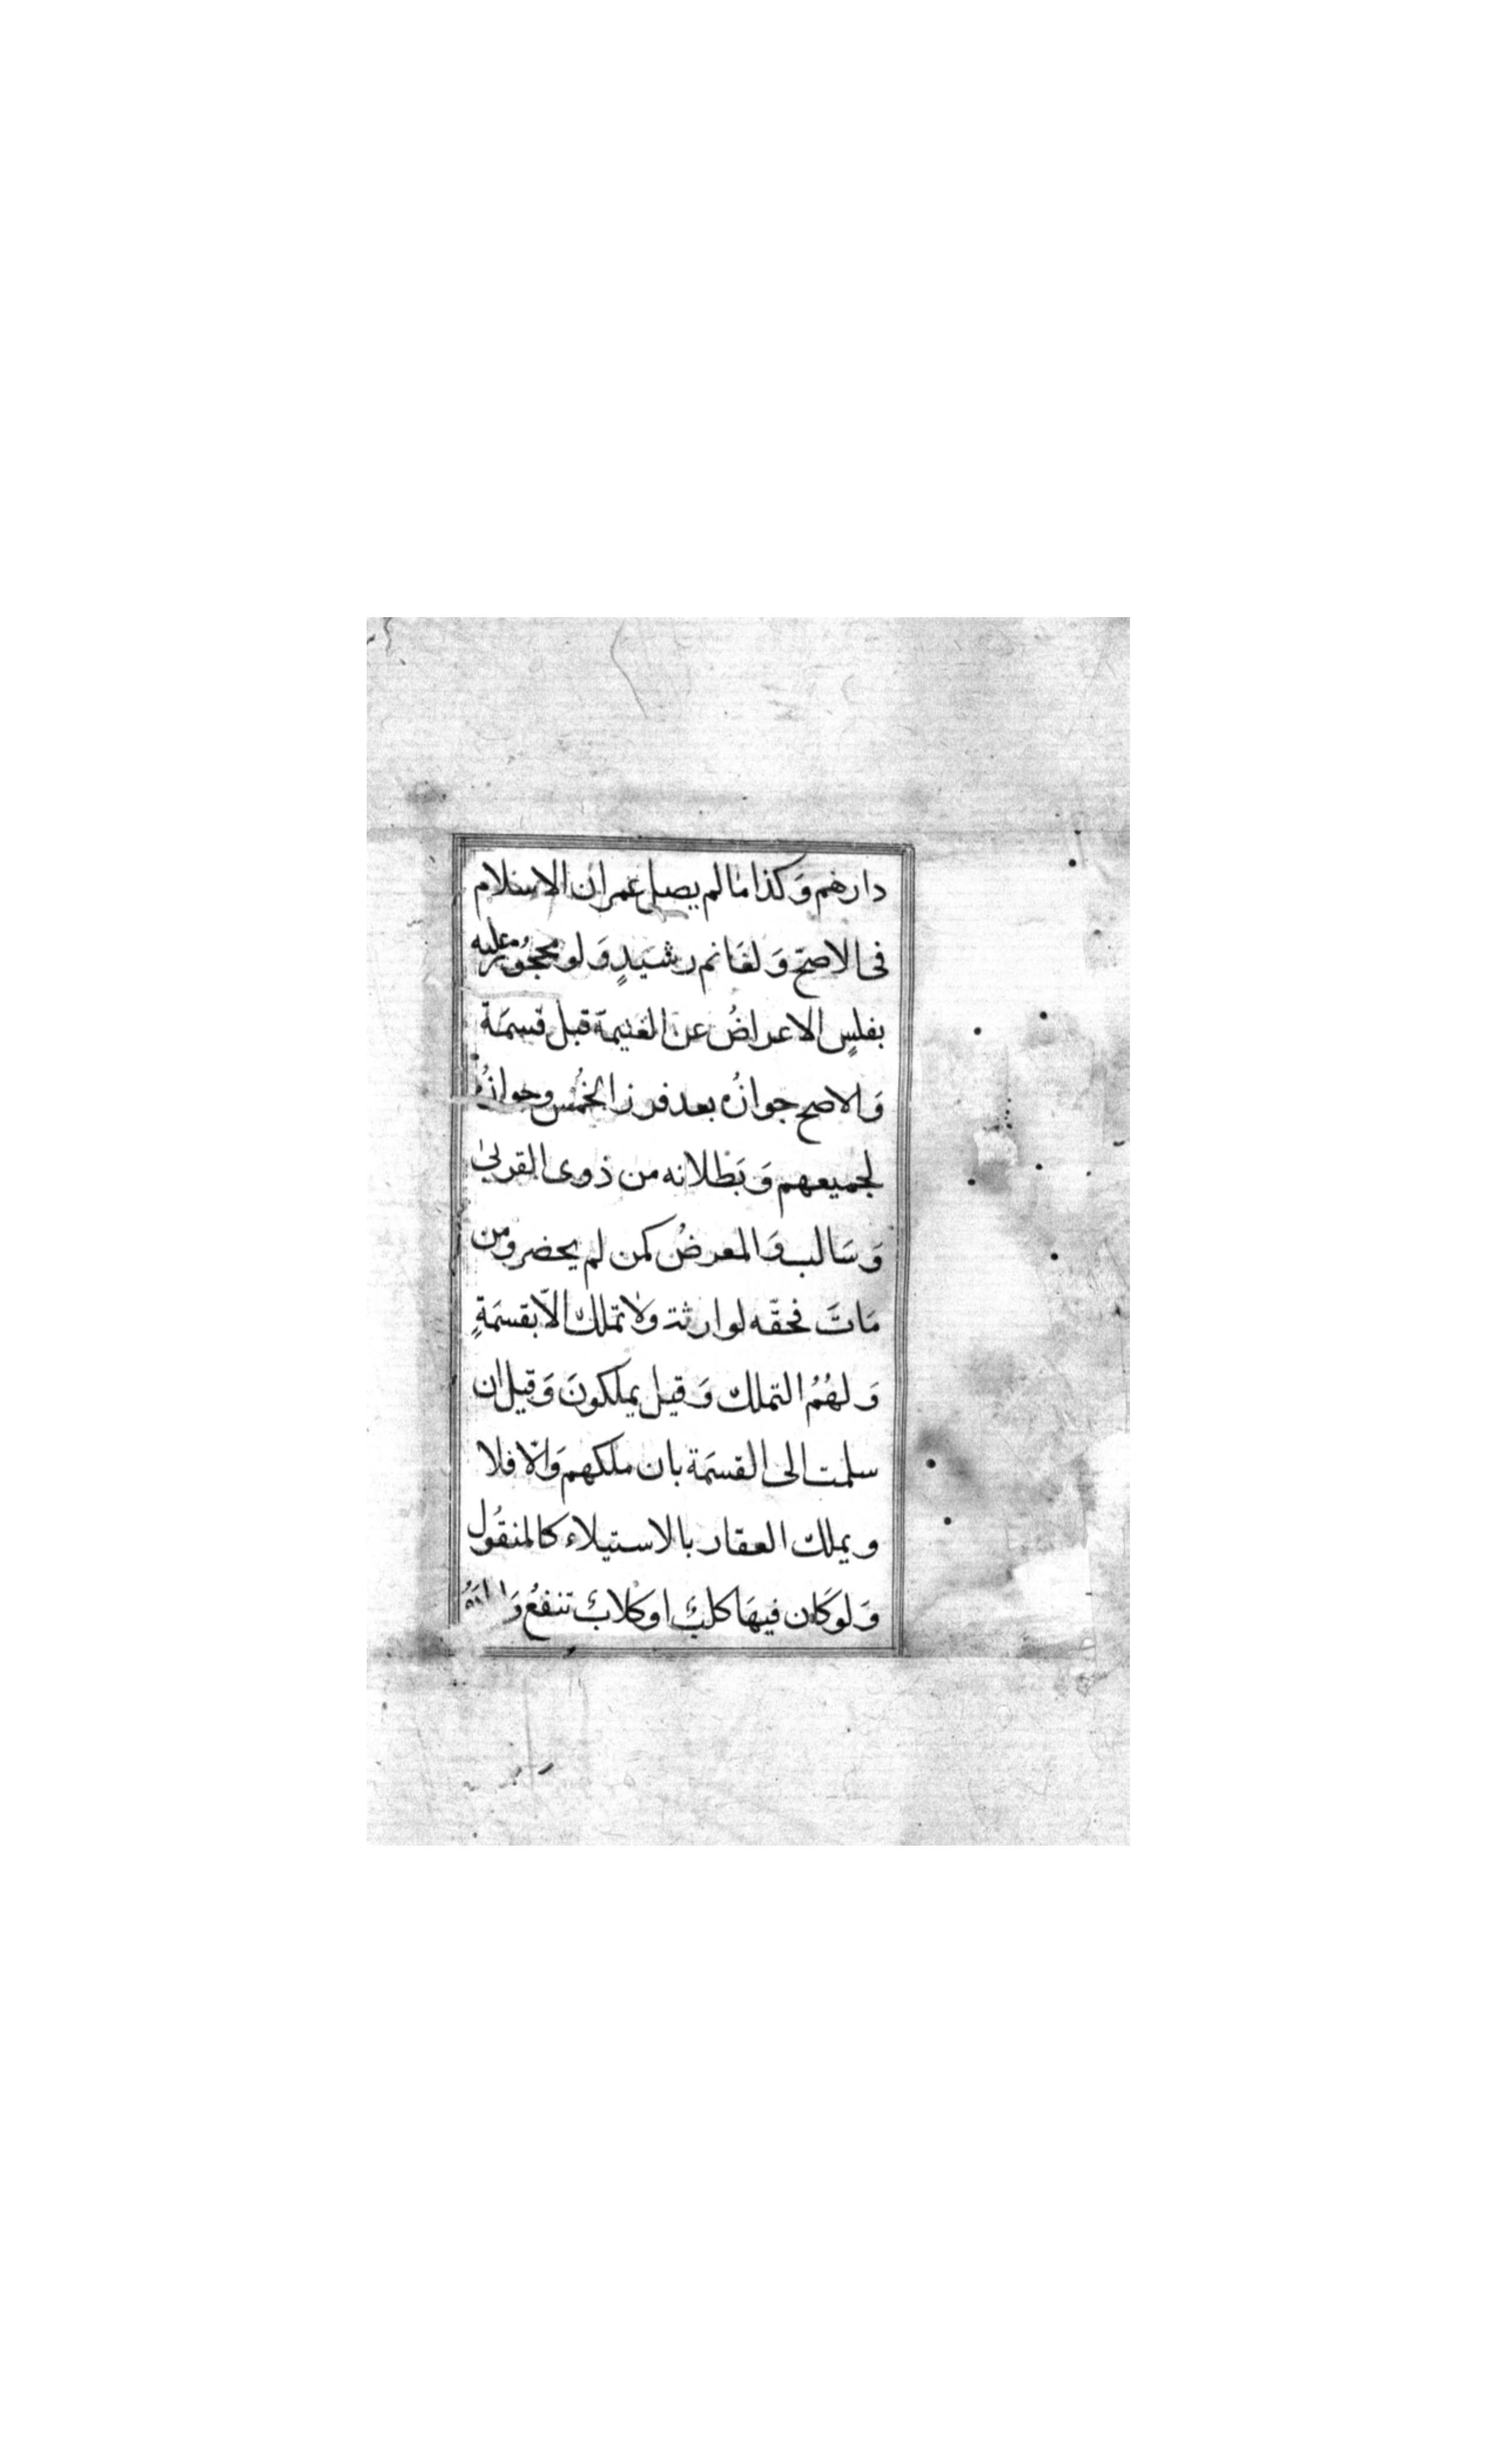 دارهم وَكذا مَا لم يصل عمران الاسلام
فى الاصحّ وَلغَانم رشيَدٍ وَلو محجُور عليه
بفلسٍ الاعراضُ عن الغنيمَة قبل قسمَة
وَالاصح جوازُه بعد فرز الخُمس وجوازُه
لجميعهم وَبَطلانه من ذوى القربىٰ
وَسَالب وَالمعرضُ كمن لم يحضر ومن
مَاتَ فحقّه لوارثة ولا تملك الّا بقسمَةٍ
وَلهُمُ التملك وَقيل يملكونَ وَقيل ان
سلمت الى القسمَة بان ملكهم وَالّا فلا
ويملك العقار بالاستيلاء كالمنقُول
وَلو كَان فيهَا كلبٌ او كلابٌ تنفعُ وَارَادَهُ